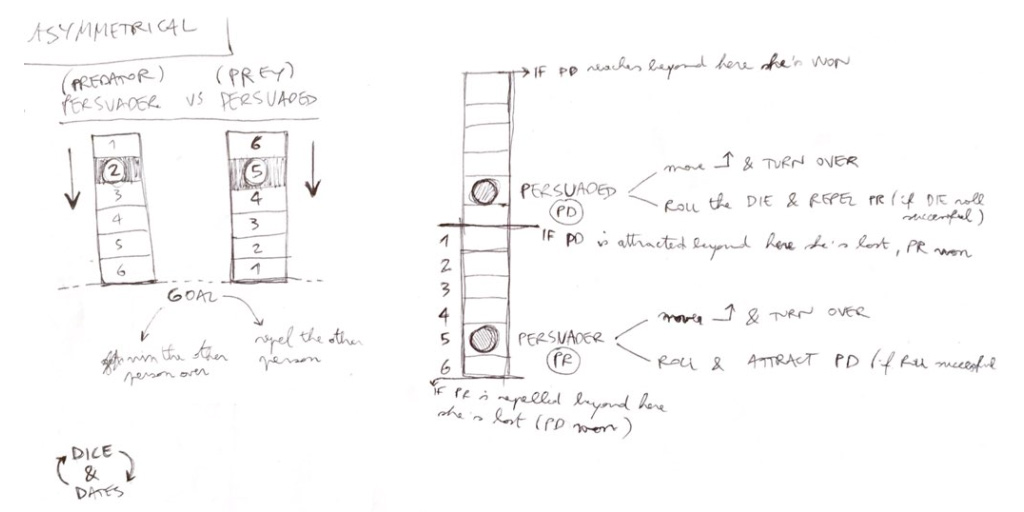 ASYMMETRICAL
(PREDATOR) (PREY)
PERSUADER VS PERSUADED
1
2
3
4
5
6
6
5
4
3
2
1
GOAL
win the other
person over
repel the other
person
DICE
&
DATES
IF PD reaches beyond here she's WON
PERSUADED
PD
move & TURN OVER
ROLL the DIE & REPEL PR (if DIE roll
successful)
IF PD is attracted beyond here she's lost, PR won
1
2
3
4
5
6
PERSUADER
PR
move & TURN OVER
ROLL & ATTRACT PD (if Roll successful
IF PR is repelled beyond here
she's lost (PD won)